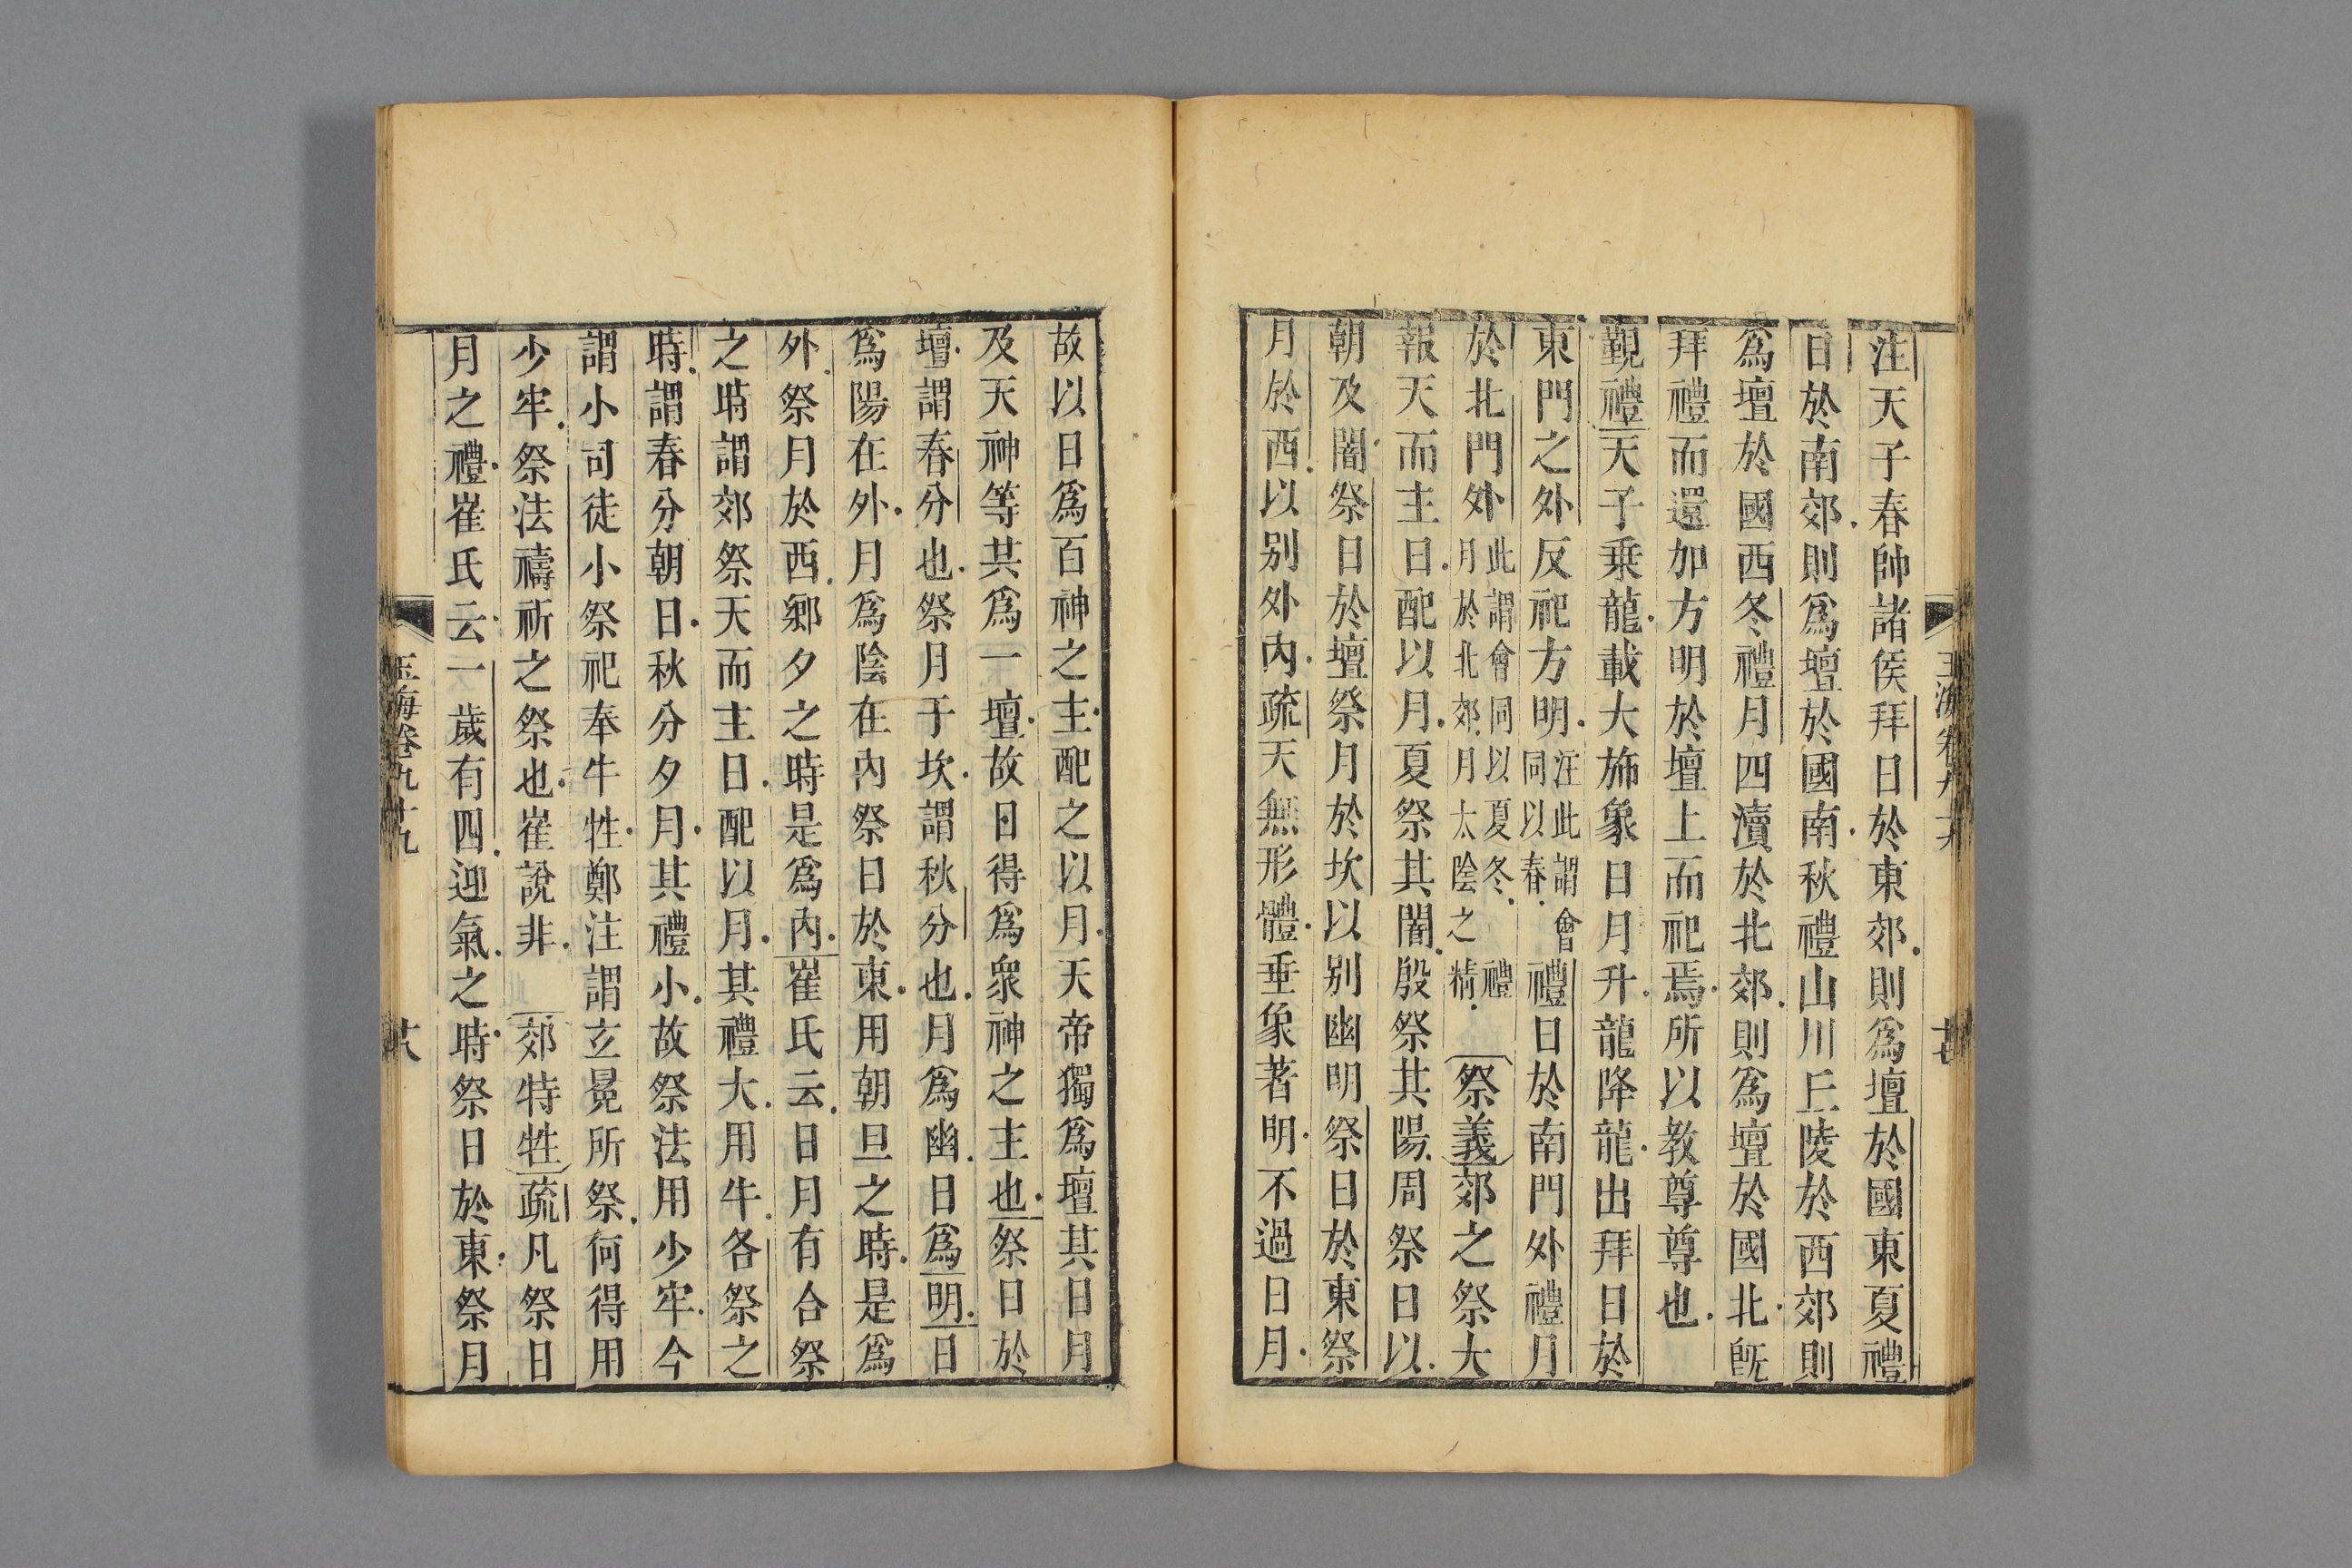 注天子春帥諸侯拜日於東郊則爲壇於國東夏禮
日於南郊則爲壇於國南秋禮山川丘陵於西郊則
爲壇於國西冬禮月四瀆於北郊則爲壇於國北旣
拜禮而還加方明於壇上而祀焉所以教尊尊也
覲禮天子乗龍載大斾象日月升龍降龍出拜日於
東門之外反祀方明注此謂會同以春禮日於南門外禮月
於北門外此謂會同以夏冬禮月於北郊月太陰之精祭義郊之祭大
報天而主日配以月夏祭其闇殷祭其陽周祭日以
朝及闇祭日於壇祭月於坎以别幽明祭日於東祭
月於西以别外内疏天無形體垂象著明不過日月
故以日爲百神之主配之以月天帝獨爲壇其日月
及天神等其爲一壇故日得爲衆神之主也祭日於
壇謂春分也祭月于坎謂秋分也月爲幽日爲明日
爲陽在外月爲陰在內祭日於東用朝旦之時是爲
外祭月於西鄉夕之時是爲內崔氏云日月有合祭
之時謂郊祭天而主日配以月其禮大用牛各祭之
時謂春分朝日秋分夕月其禮小故祭法用少牢今
謂小司徒小祭祀奉牛牲鄭注謂玄冕所祭何得用
少牢祭法禱祈之祭也崔說非 郊特牲疏凡祭日
月之禮崔氏云一歲有四迎氣之時祭日於東祭月
玉海卷九十九
六